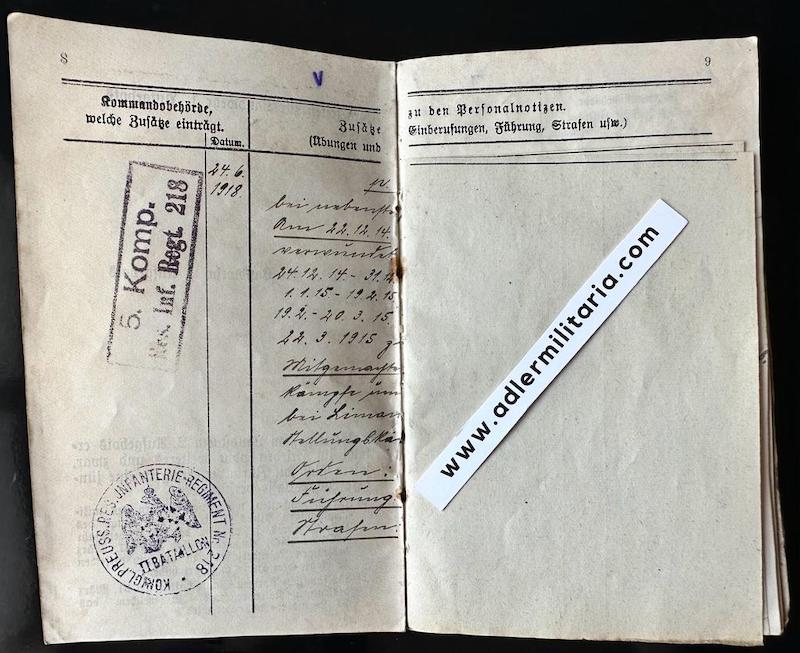 8
V
Kommandobehörde,
welche Zusätze einträgt.
Datum.
Zusätze
(Übungen und
24.6.
1918.
5. Komp.
Res. Inf. Regt. 218
bei nebenste
Am 22.12.14.
verwundet
24.12.14 - 31.12
1.1.15 - 19.2.15
19.2. - 20.3.15.
22.3.1915 z
Mitgemachte
kämpfe um
bei Liman
Stellungskä
Orden:
Führung
Strafen:
KÖNIGL. PREUSS. RES. INFANTERIE-REGIMENT Nr. 218
II BATAILLON
9
zu den Personalnotizen.
Einberufungen, Führung, Strafen usw.)
www.adlermilitaria.com